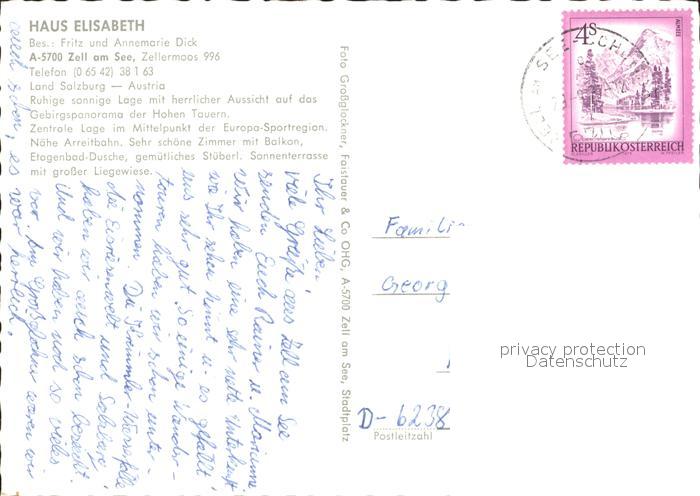 HAUS ELISABETH
Bes.: Fritz und Annemarie Dick
A-5700 Zell am See, Zellermoos 996
Telefon (0 65 42) 38 1 63
Land Salzburg — Austria
Ruhige sonnige Lage mit herrlicher Aussicht auf das
Gebirgspanorama der Hohen Tauern.
Zentrale Lage im Mittelpunkt der Europa-Sportregion.
Nähe Arreitbahn. Sehr schöne Zimmer mit Balkon,
Etagenbad-Dusche, gemütliches Stüberl. Sonnenterrasse
mit großer Liegewiese.
Ihr Lieben,
viele Grüße aus Zell am See
senden Euch Rainer u. Marianne
Wir haben eine sehr nette Unterkunft
wie Ihr sehen könnt u. es gefällt
uns sehr gut. So einige Wander-
touren haben wir schon unter-
nommen. Die Krimmler-Wasserfälle
die Eisriesenwelt und Salzburg
haben wir auch schon besucht.
Und wir haben noch so vieles
vor. Am Großglockner waren wir
auch schon, es war herrlich.
Foto Großglockner, Faistauer & Co OHG, A-5700 Zell am See, Stadtplatz
4S
ALMSEE
REPUBLIK ÖSTERREICH
ZELL AM SEE
Famili
Georg
D-6238
Postleitzahl
privacy protection
Datenschutz